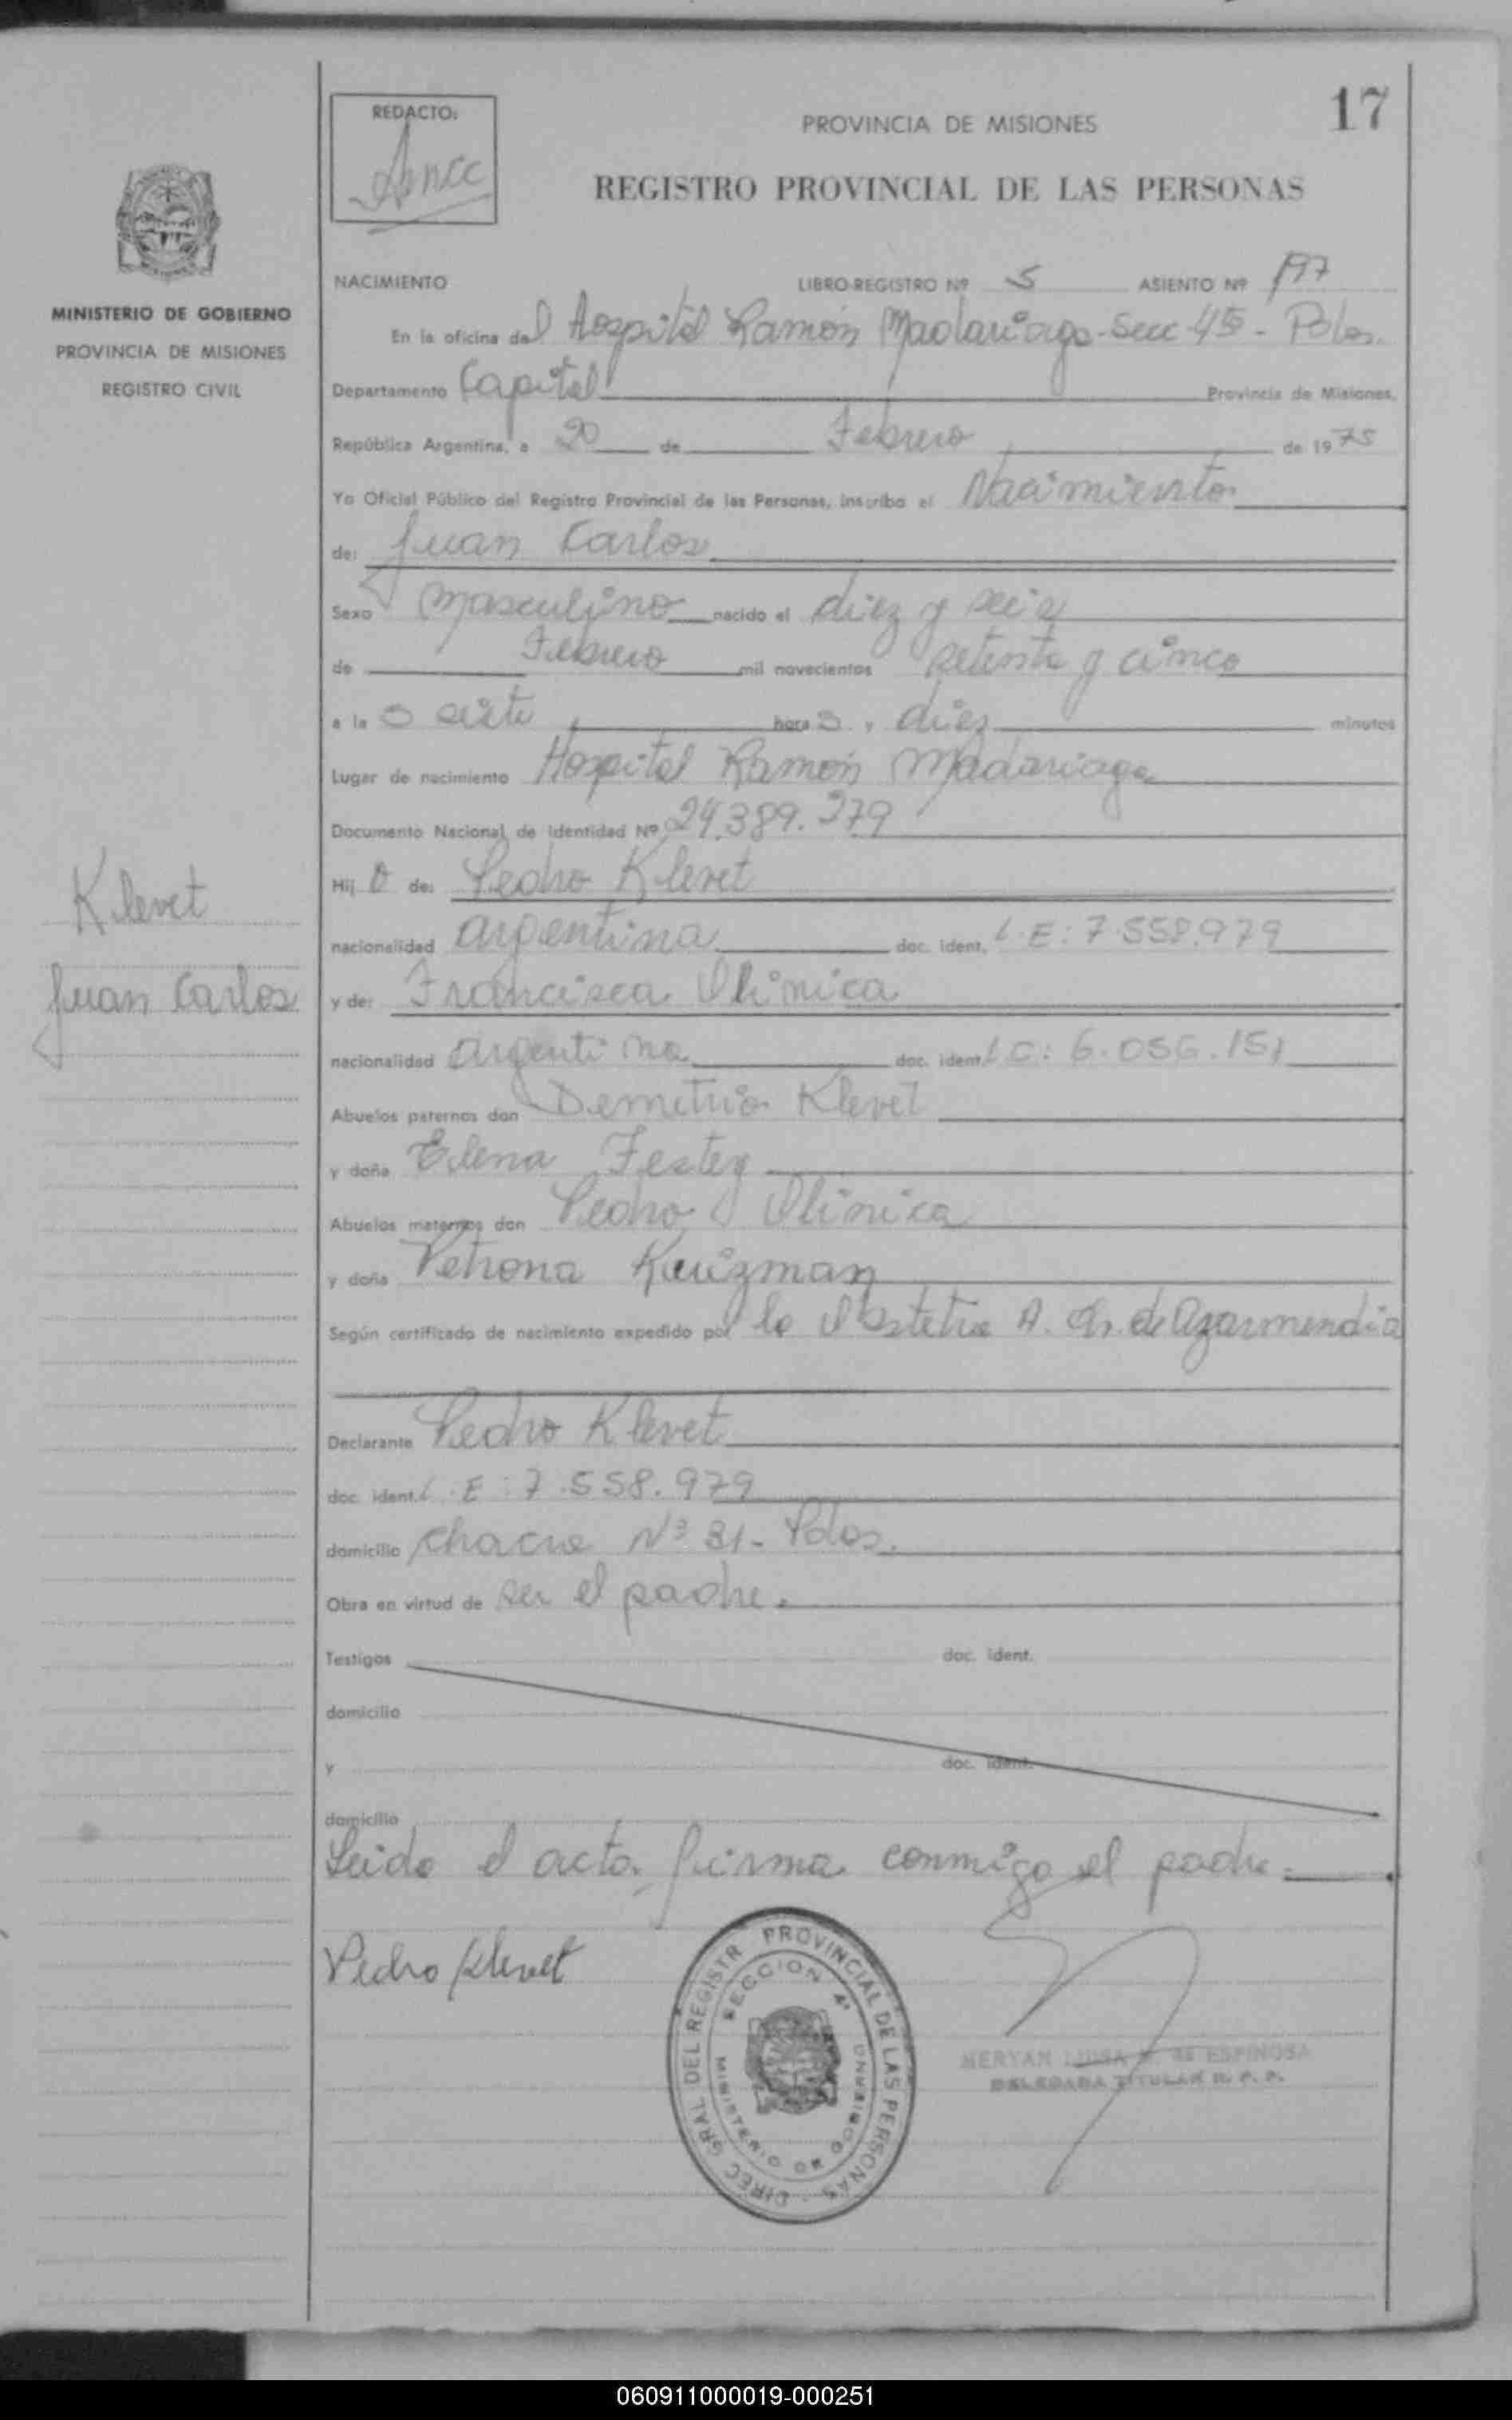 17
REDACTO:
PROVINCIA DE MISIONES
REGISTRO PROVINCIAL DE LAS PERSONAS
MINISTERIO DE GOBIERNO
PROVINCIA DE MISIONES
REGISTRO CIVIL
NACIMIENTO LIBRO-REGISTRO Nº 5 ASIENTO Nº 197
En la oficina del Hospital Ramón Madariaga - Secc 4º - Pdas.
Departamento Capital Provincia de Misiones,
República Argentina, a 20 de Febrero de 1975
Yo Oficial Público del Registro Provincial de las Personas, inscribo el Nacimiento
de: Juan Carlos
Sexo masculino nacido el diez y seis
de Febrero mil novecientos setenta y cinco
a la s siete hora s y diez minutos
Lugar de nacimiento Hospital Ramón Madariaga
Documento Nacional de Identidad Nº 24.389.279
Hij o de: Pedro Klevet
nacionalidad argentina doc. ident. L.E: 7.558.979
y de: Francisca Olinica
nacionalidad argentina doc. ident. L.C: 6.056.151
Abuelos paternos don Demetrio Klevet
y doña Elena Festey
Abuelos maternos don Pedro Olinica
y doña Petrona
Según certificado de nacimiento expedido por la Obstetra A. Ch. de Azarmendia
Declarante Pedro Klevet
doc. ident. L.E: 7.558.979
domicilio Chacra Nº 31- Pdas.
Obra en virtud de ser el padre.
Testigos doc. ident.
domicilio
y doc. ident.
domicilio
Leido el acta, firma conmigo el padre.
Klevet
Juan Carlos
Pedro Klevet
DIREC GRAL DEL REGISTR PROVINCIAL DE LAS PERSONAS
SECCION 4º
MINISTERIO DE GOBIERNO
MERYAN LUISA DE ESPINOSA
DELEGADA TITULAR R. P. P.
060911000019-000251